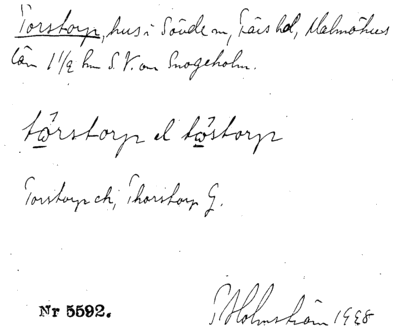 Torstorp, hus i Sövde sn, Färs hd, Malmöhus
län 1 1/2 km S.V. om Snogeholm.
tω̊rstorp el tω̊storp
Torstorp ek, Thorstorp G.
Nr 5592.
Holmström 1928